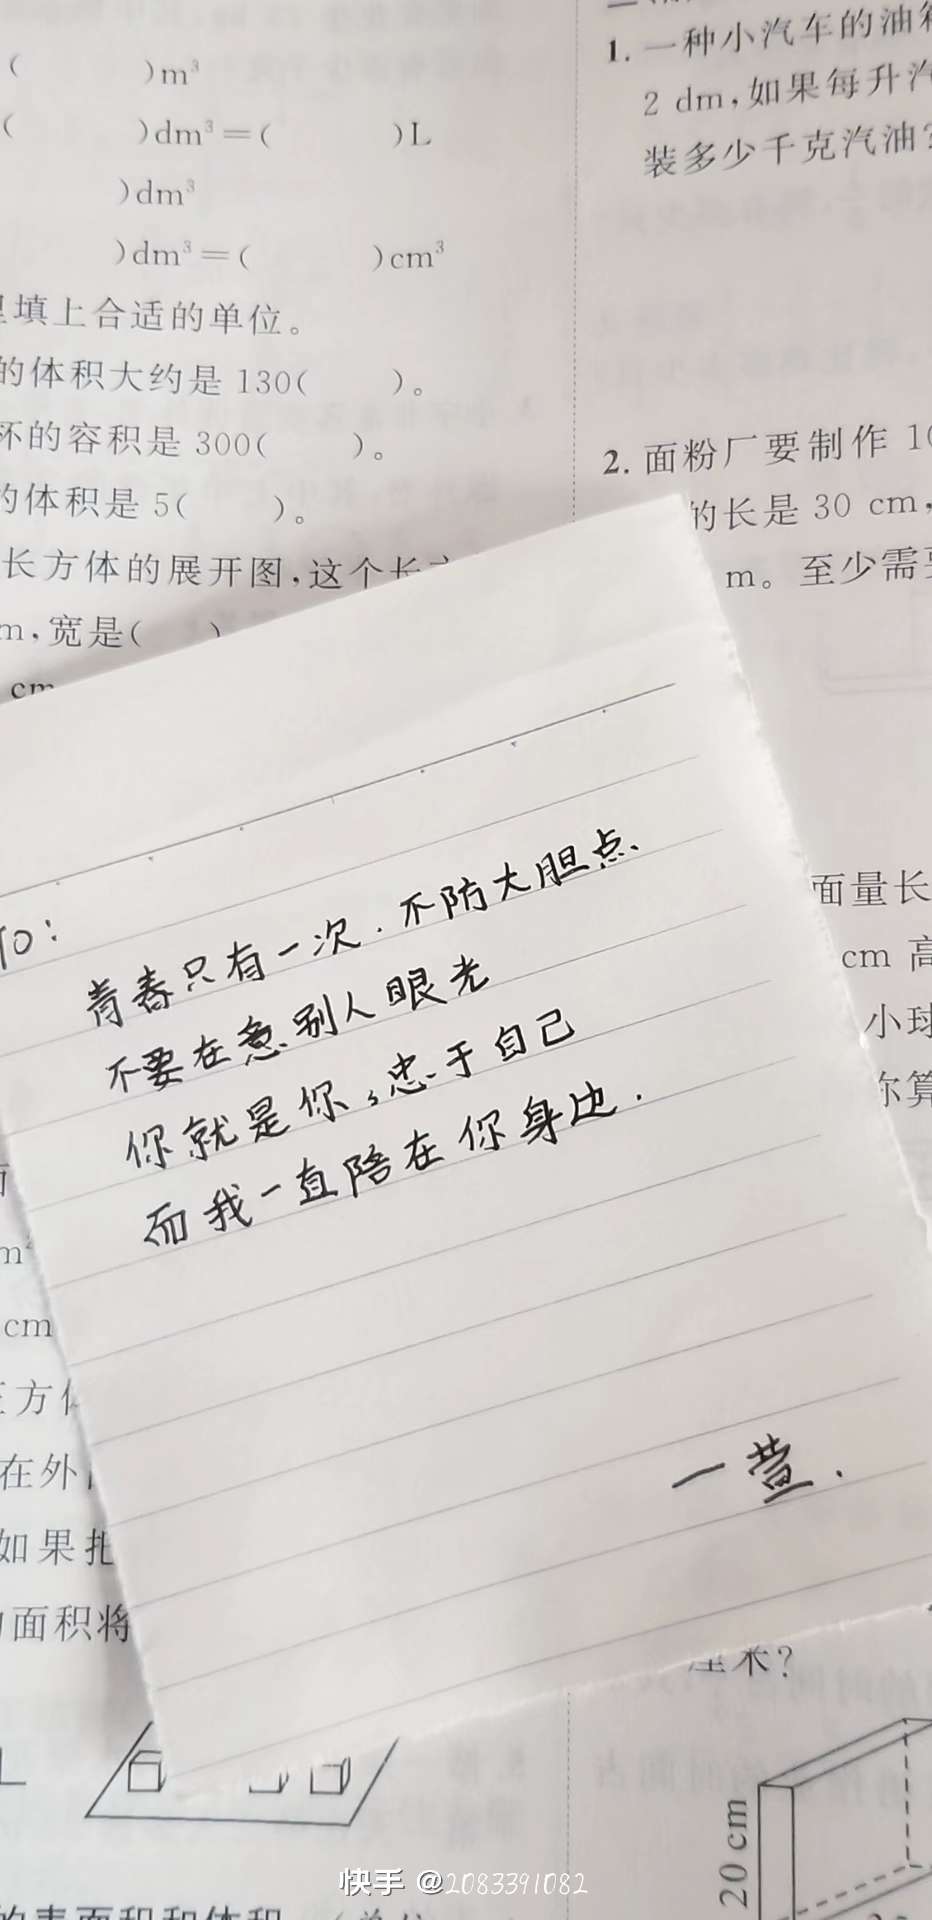 ( )m³
( )dm³=( )L
)dm³
)dm³=( )cm³
里填上合适的单位。
的体积大约是130( )。
杯的容积是300( )。
的体积是5( )。
长方体的展开图,这个长方
m,宽是( )
cm
1. 一种小汽车的油箱
2 dm,如果每升汽
装多少千克汽油?
2. 面粉厂要制作 10
的长是 30 cm,
m。至少需要
TO:
青春只有一次.不防大胆点.
不要在意别人眼光
你就是你,忠于自己
而我一直陪在你身边.
一萱.
面量长
cm 高
小球
你算
m²
cm
正方体
在外
如果把
面积将
厘米?
20 cm
的表面积和体积
快手 @2083391082